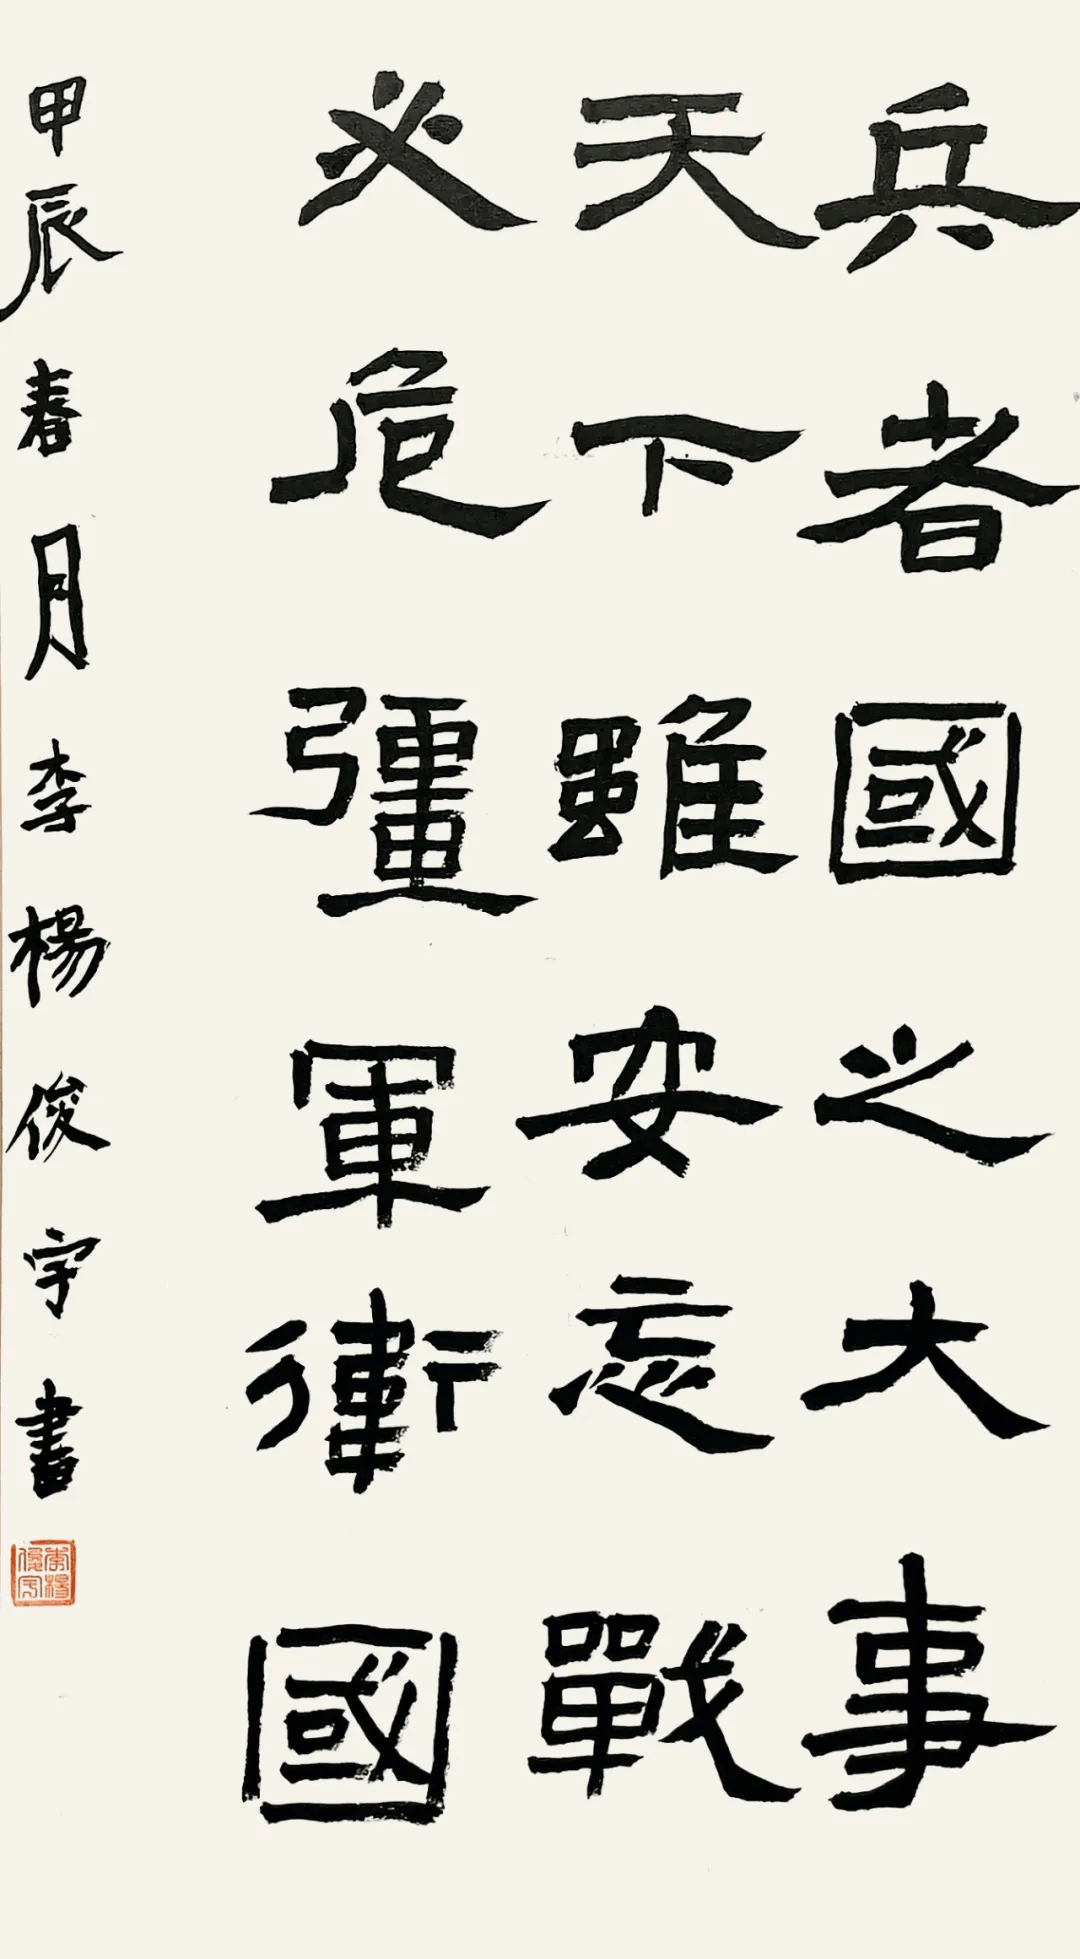 兵者國之大事
天下雖安忘戰
必危彊軍衛國
甲辰春月李楊俊宇書
李楊俊宇